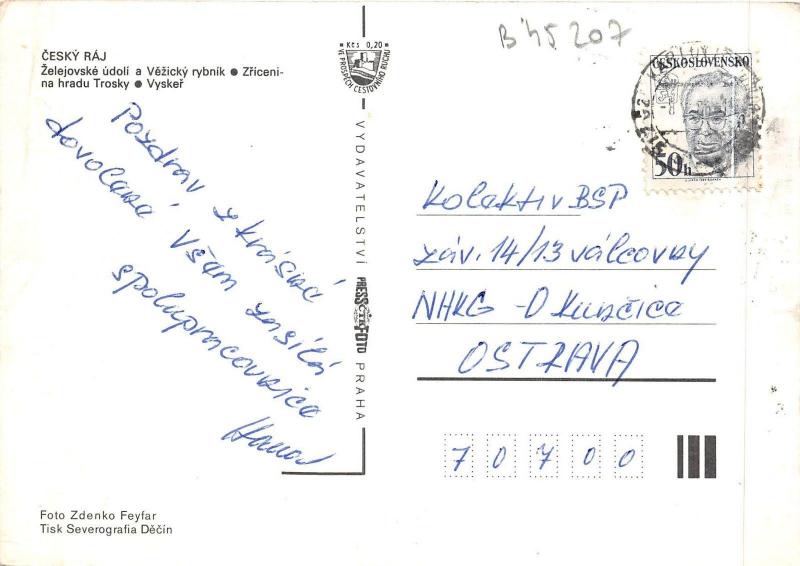 B 45 207
ČESKÝ RÁJ
Želejovské údolí a Věžický rybník ● Zříceni-
na hradu Trosky ● Vyskeř
Kčs 0,20
VE PROSPĚCH CESTOVNÍHO RUCHU
ČESKOSLOVENSKO
50 h
Pozdrav z krásné
dovolené Všem zasílá
spolupracovnice
Hana
VYDAVATELSTVÍ PRESSFOTO PRAHA
Kolektiv BSP
záv. 14/13 válcovny
NHKG - O Kunčice
OSTRAVA
70700
Foto Zdenko Feyfar
Tisk Severografia Děčín